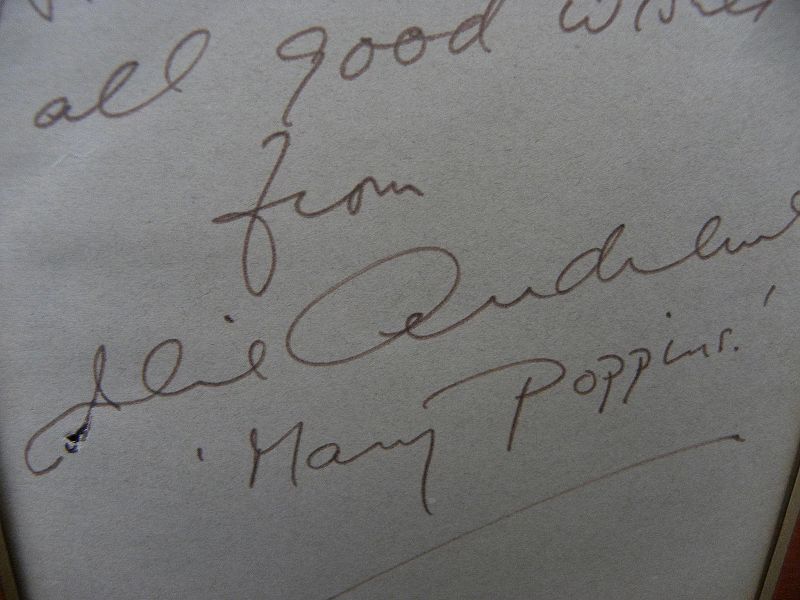 all good wishes
from
Julie Andrews
'Mary Poppins.'